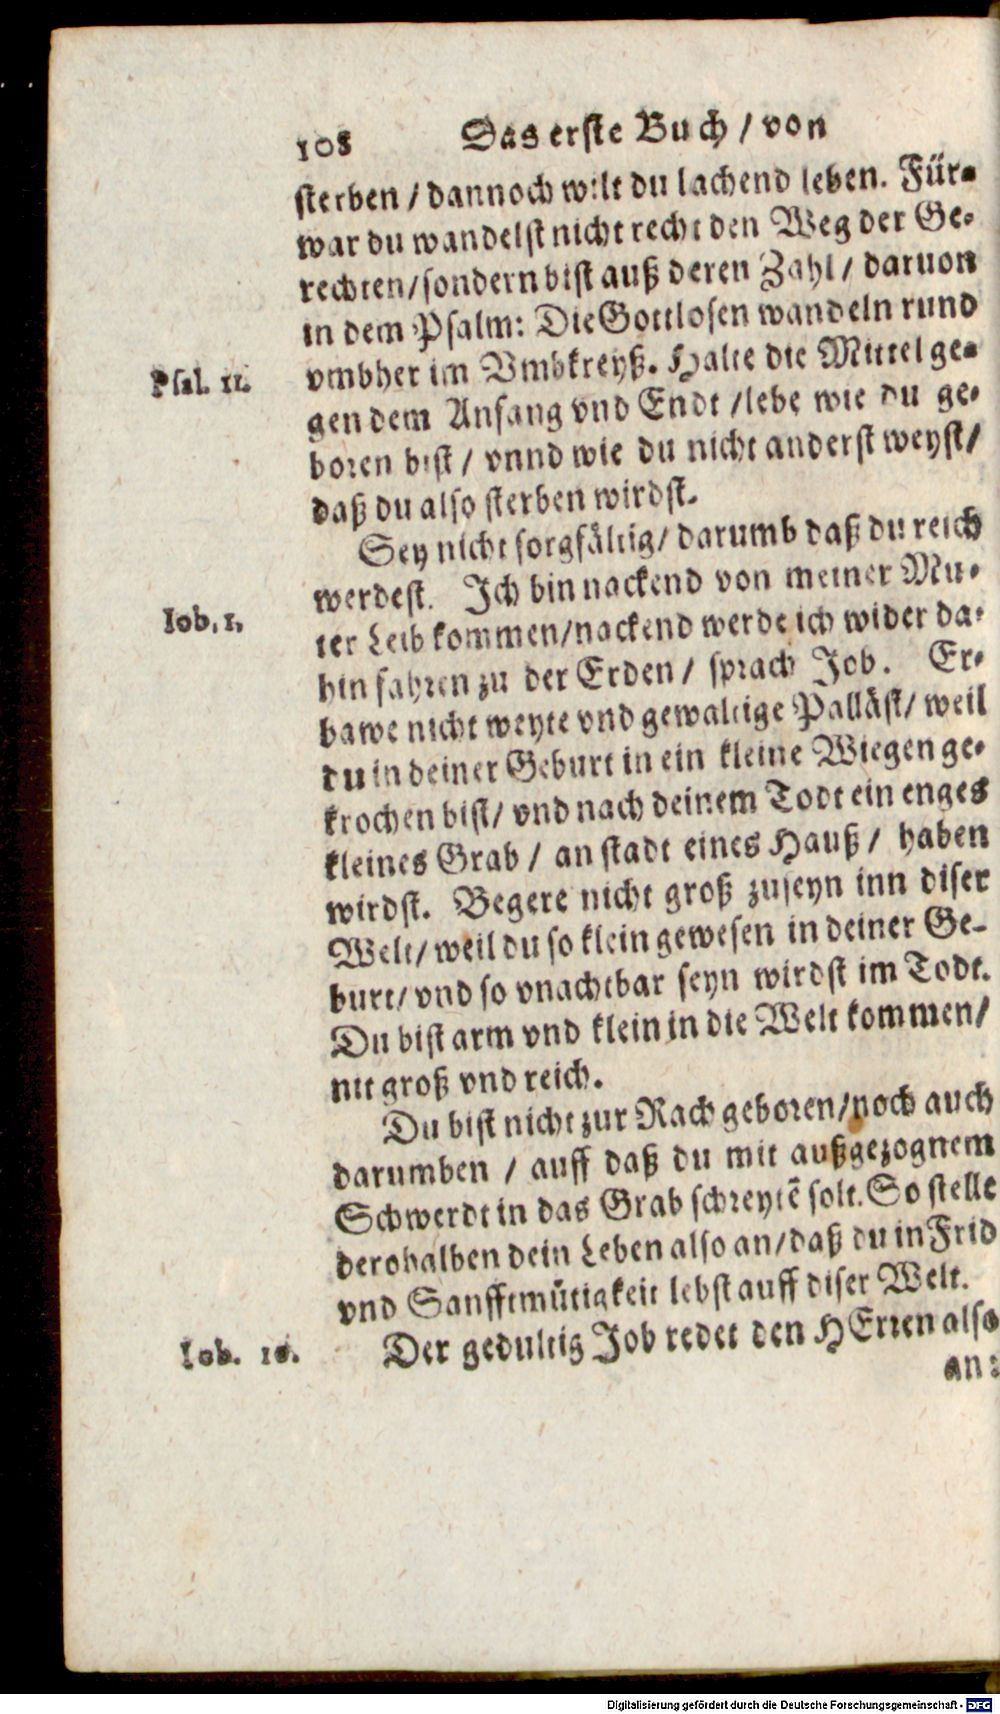 108 Das erste Buch / von
sterben / dannoch wilt du lachend leben. Für-
war du wandelst nicht recht den Weg der Ge-
rechten/sondern bist auß deren Zahl / daruon
in dem Psalm: Die Gottlosen wandeln rund
Psal. 11. vmbher im Vmbkreyß. Halte die Mittel ge-
gen dem Anfang vnd Endt /lebe wie du ge-
boren bist / vnnd wie du nicht anderst weyst/
daß du also sterben wirdst.
Sey nicht sorgfältig/ darumb daß du reich
werdest. Ich bin nackend von meiner Mu-
Iob. 1. ter Leib kommen/nackend werde ich wider da-
hin fahren zu der Erden / sprach Job. Er-
bawe nicht weyte vnd gewaltige Palläst/ weil
du in deiner Geburt in ein kleine Wiegen ge-
krochen bist/ vnd nach deinem Todt ein enges
kleines Grab / an stadt eines Hauß / haben
wirdst. Begere nicht groß zuseyn inn diser
Welt/ weil du so klein gewesen in deiner Ge-
burt/ vnd so vnachtbar seyn wirdst im Todt.
Du bist arm vnd klein in die Welt kommen/
nit groß vnd reich.
Du bist nicht zur Rach geboren/noch auch
darumben / auff daß du mit außgezognem
Schwerdt in das Grab schreytē solt. So stelle
derohalben dein Leben also an/daß du in Frid
vnd Sanfftmütigkeit lebst auff diser Welt.
Iob. 10. Der gedultig Job redet den HErren also
an:
Digitalisierung gefördert durch die Deutsche Forschungsgemeinschaft - DFG